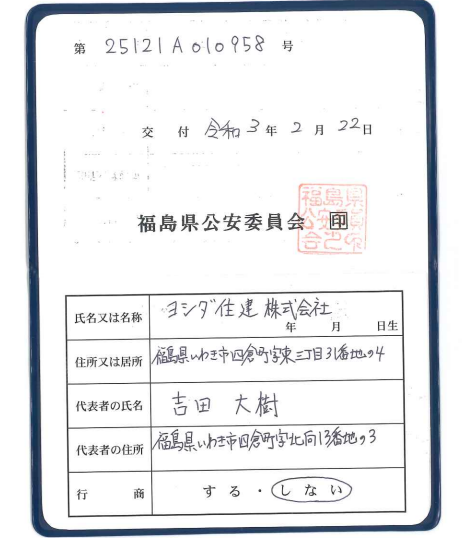 第 25121A010958 号
交 付 令和 3 年 2 月 22 日
福島県公安委員会 印
氏名又は名称 ヨシダ住建 株式会社
年 月 日生
住所又は居所 福島県いわき市四倉町字東三丁目31番地の4
代表者の氏名 吉田 大樹
代表者の住所 福島県いわき市四倉町字北向13番地の3
行 商 する・しない